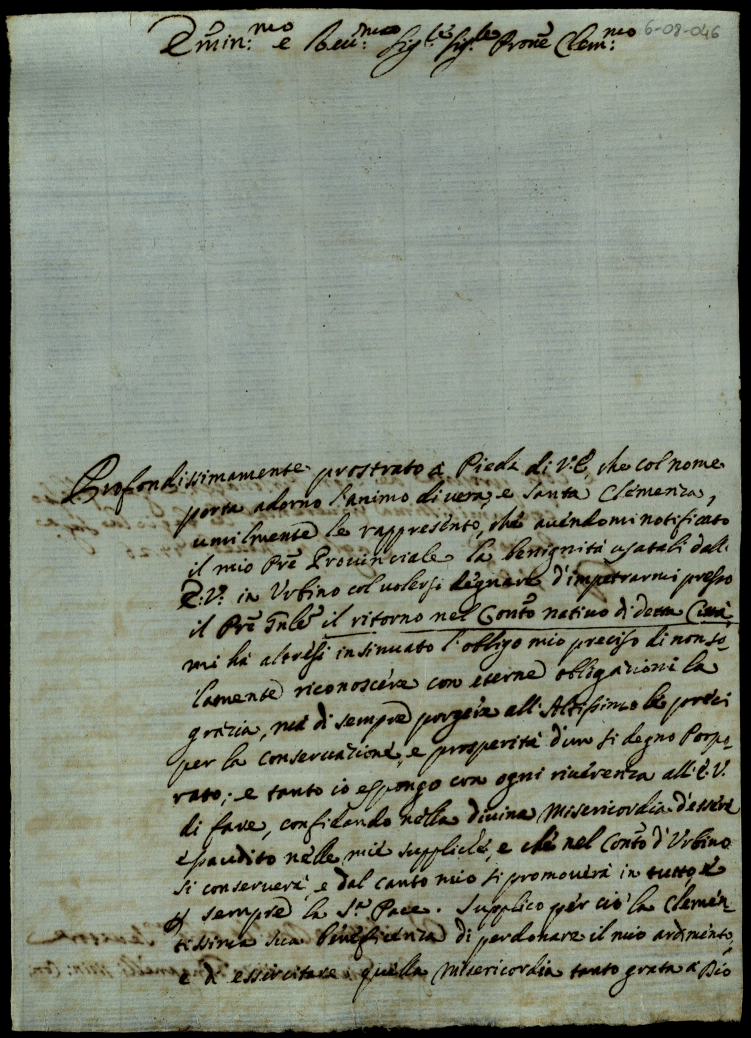 6-08-046
Emin:mo e Reu:mo Sig:re Sig:re Prone Clem:mo
Profondissimamente prostrato à Piedi di V:E, che col nome
porta adorno l'animo di uera, e santa Clemenza,
umilmente le rappresento, che auendomi notificato
il mio Pre Prouinciale la benignità usatali dall'
E:V: in Urbino col uolersi degnare d'impetrarmi presso
il Pre Gnle il ritorno nel Conto natiuo di detta Città
mi hà altresi insinuato l'obligo mio preciso di non so-
lamente riconoscere con eterne obligazioni la
grazia, mà di sempre porgere all'Altissimo le preci
per la conseruazione, e prosperità d'un si degno Porpo-
rato; e tanto io espongo con ogni riuerenza all'E.V.
di fare, confidando nella diuina Misericordia d'essere
esaudito nelle mie suppliche, e che nel Conto d'Urbino
si conseruerà, e dal canto mio si promouerà in tutto, e
p sempre la S.ta Pace. Supplico per ciò la Clemen-
tissima sua beneficenza di perdonare il mio ardimento,
e d'essercitare quella misericordia tanto grata à Dio